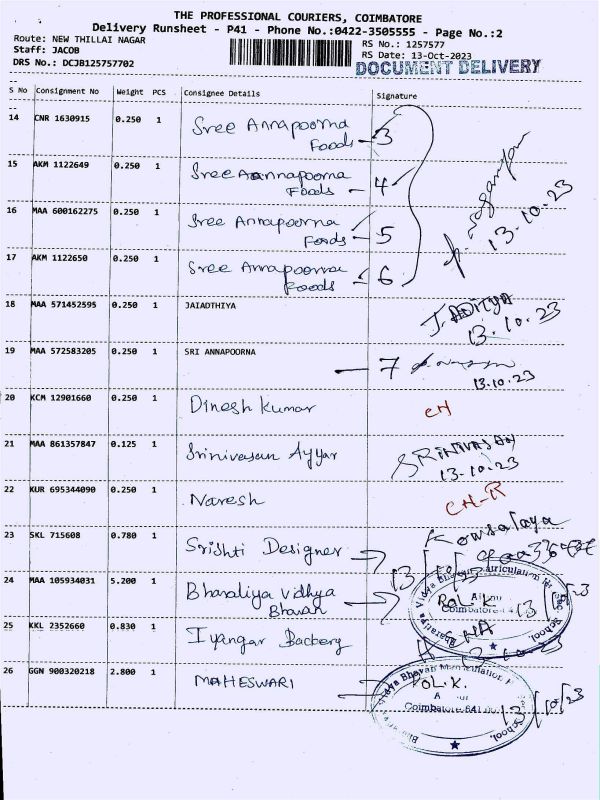 THE PROFESSIONAL COURIERS, COIMBATORE
Delivery Runsheet - P41 - Phone No.:0422-3505555 - Page No.:2
Route: NEW THILLAI NAGAR
Staff: JACOB
DRS No.: DCJB125757702
RS No.: 1257577
RS Date: 13-Oct-2023
DOCUMENT DELIVERY
S No Consignment No Weight PCS Consignee Details Signature
14 CNR 1630915 0.250 1 Sree Annapoorna
Foods - 3
15 AKM 1122649 0.250 1 Sree Annapoorna
Foods - 4
13.10.23
16 MAA 600162275 0.250 1 Sree Annapoorna
Foods - 5
17 AKM 1122650 0.250 1 Sree Annapoorna
Foods 6
18 MAA 571452595 0.250 1 JAIADTHIYA J. ADITYA
13.10.23
19 MAA 572583205 0.250 1 SRI ANNAPOORNA - 7
13.10.23
20 KCM 12901660 0.250 1 Dinesh Kumar CH
21 MAA 861357847 0.125 1 Srinivasan Ayyar SRINIVASAN
13.10.23
22 KUR 695344090 0.250 1 Naresh CH-R
23 SKL 715608 0.780 1 Srishti Designer Kowsalaya
24 MAA 105934031 5.200 1 Bharaliya Vidhya
Bhavan
25 KKL 2352660 0.830 1 Iyangar Backery
26 GGN 900320218 2.800 1 MAHESWARI